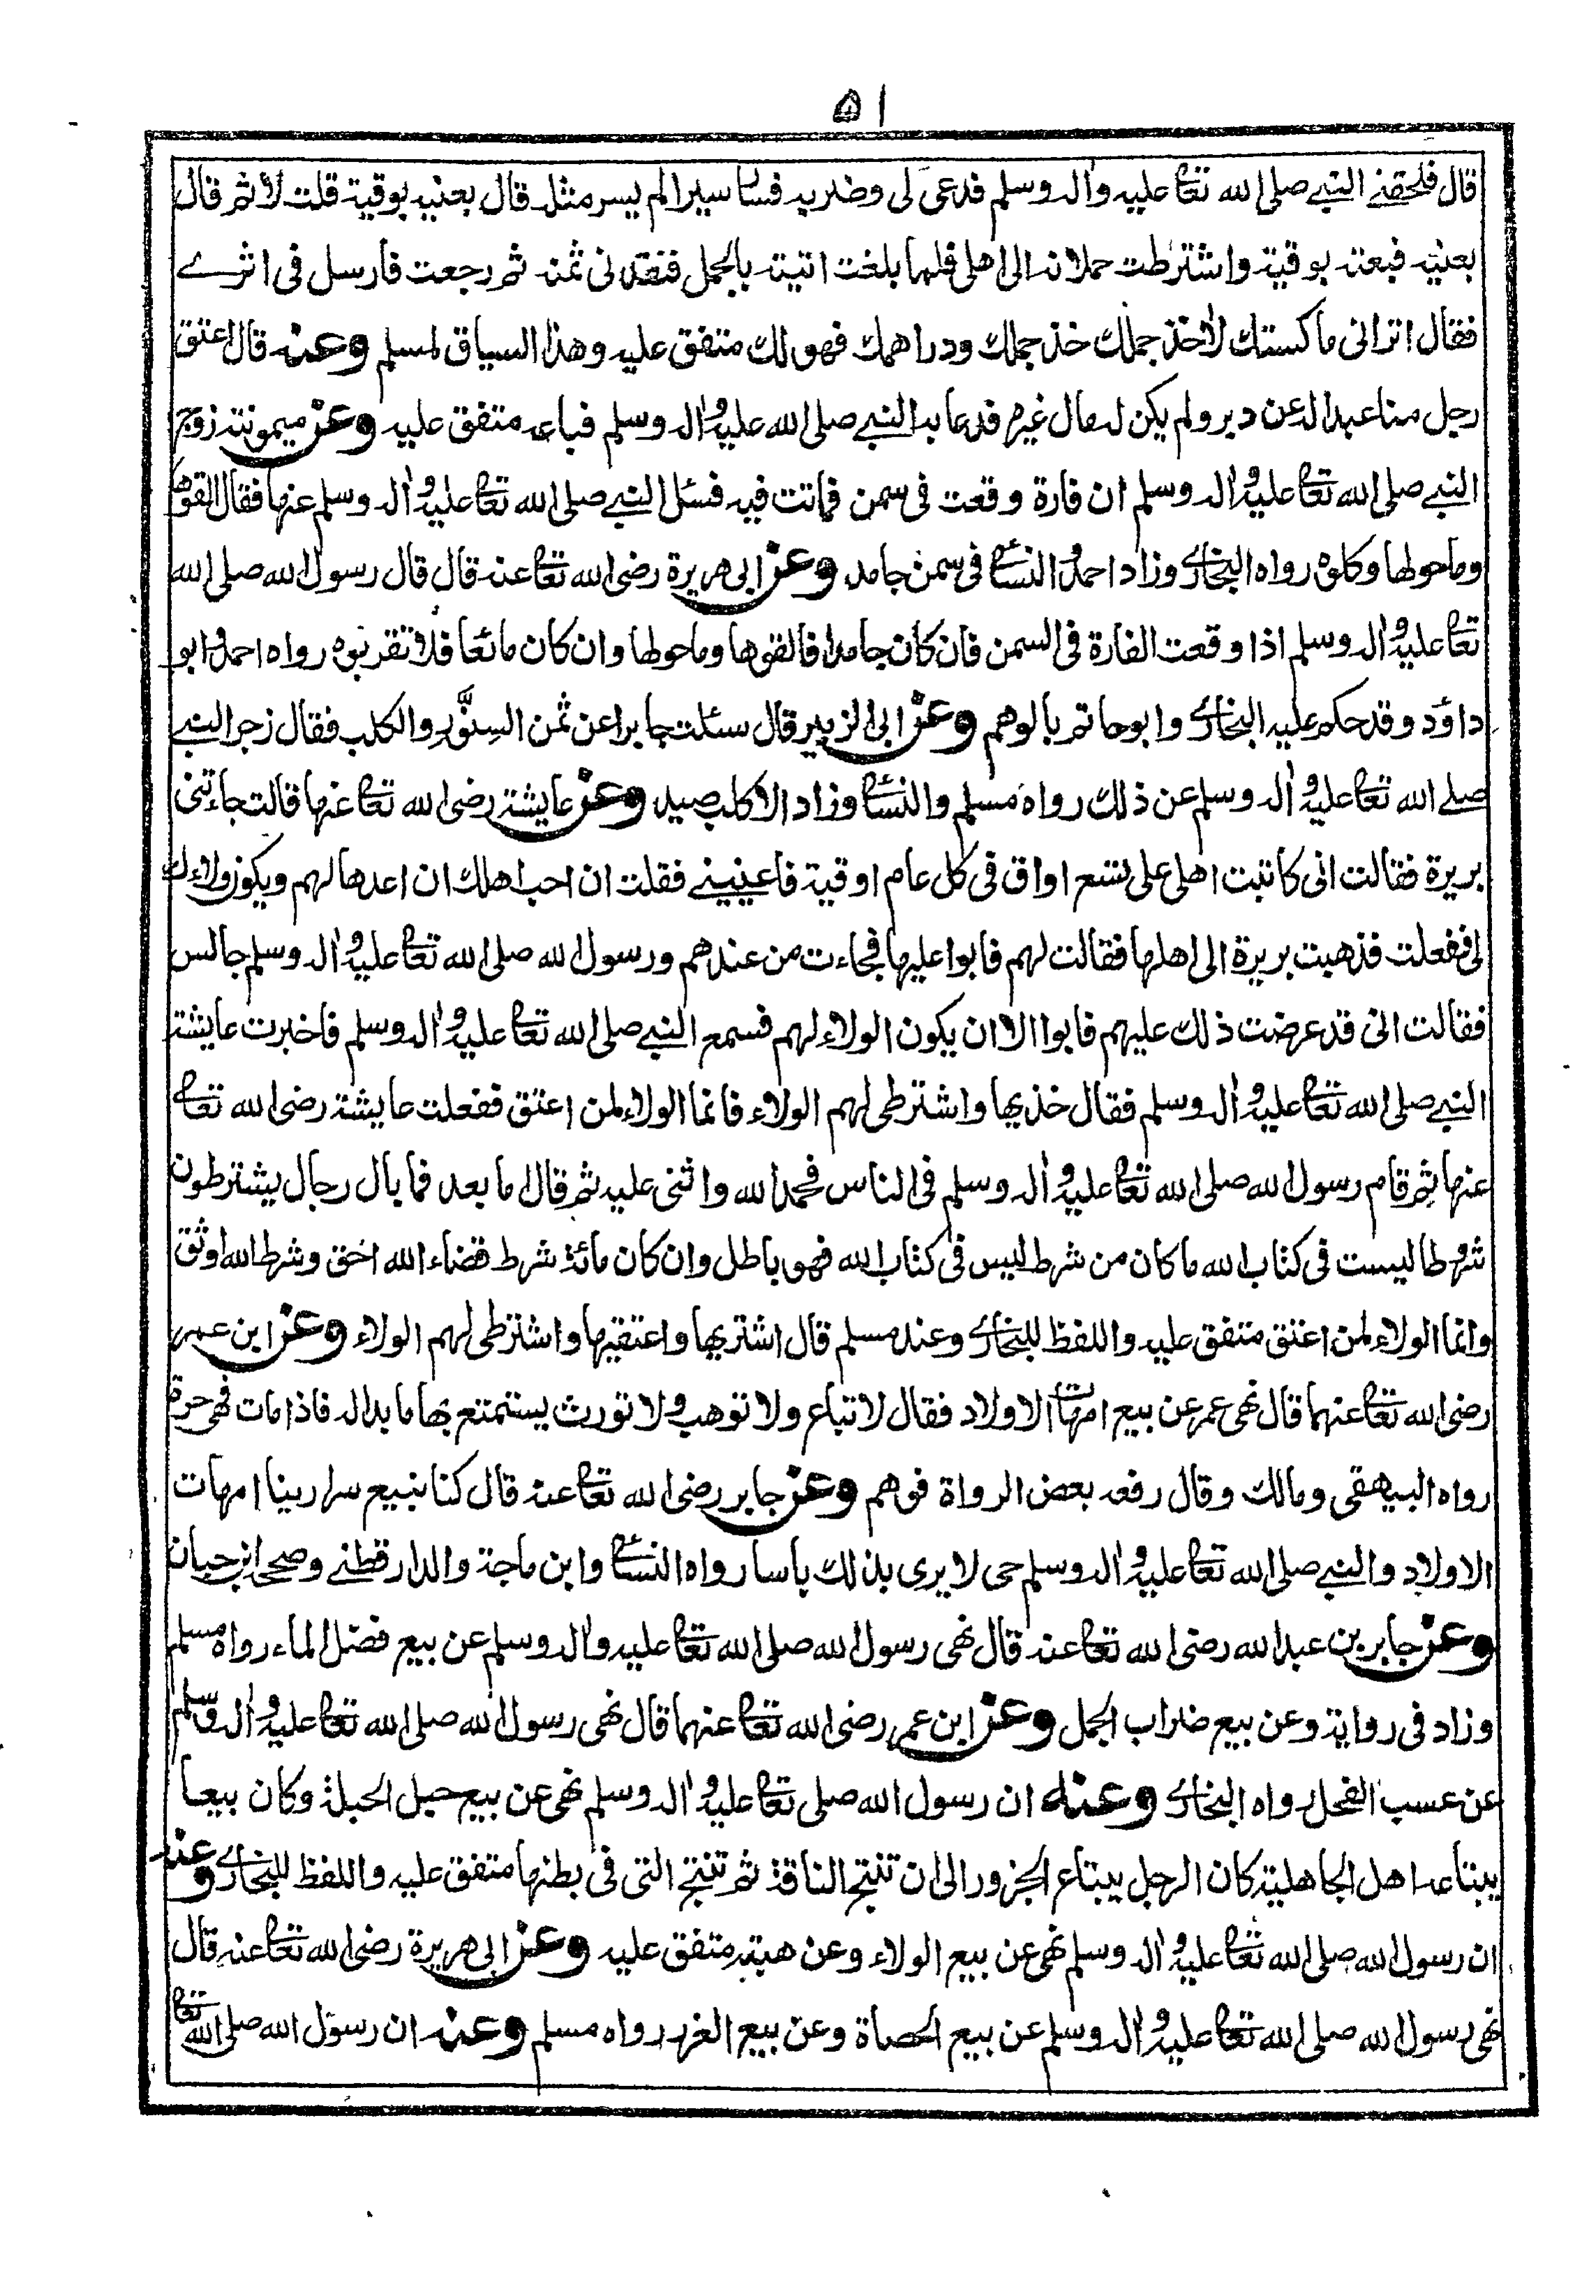 ٥١
قال فلحقنے النبے صلی الله تعالی علیه واله وسلم فدعی لی وضربه فسار سیرا لم یسر مثله قال بعنیه بوقیة قلت لا ثم قال
بعنیه فبعته بوقیة واشترطت حملانه الی اهلی فلما بلغت اتیته بالجمل فنقدنی ثمنه ثم رجعت فارسل فی اثرے
فقال اترانی ماکستك لاٰخذ جملك خذ جملك ودراهمك فهو لك متفق علیه وهذا السیاق لمسلم وعنه قال اعتق
رجل منا عبدا له عن دبر ولم یکن له مال غیره فدعا به النبے صلی الله علیه واٰله وسلم فباعه متفق علیه وعن میمونة زوج
النبے صلی الله تعالی علیه واٰله وسلم ان فارة وقعت فی سمن فماتت فیه فسئل النبے صلی الله تعالی علیه واٰله وسلم عنها فقال القوها
وماحولها وکلوه رواه البخارے وزاد احمد والنسائی فی سمن جامد وعن ابی هریرة رضی الله تعالی عنه قال قال رسول الله صلی الله
تعالی علیه واٰله وسلم اذا وقعت الفارة فی السمن فان کان جامدا فالقوها وماحولها وان کان مائعا فلا تقربوه رواه احمد وابو
داؤد وقد حکم علیه البخارے وابو حاتم بالوهم وعن ابی الزبیر قال سئلت جابرا عن ثمن السِنَّور والکلب فقال زجر النبے
صلے الله تعالی علیه واٰله وسلم عن ذلك رواه مسلم والنسائی وزاد الا کلب صید وعن عایشة رضی الله تعالی عنها قالت جاءتنی
بریرة فقالت انی کاتبت اهلی علی تسع اواق فی کل عام اوقیة فاعینینے فقلت ان احب اهلك ان اعدها لهم ویکون ولاءك
لی ففعلت فذهبت بریرة الی اهلها فقالت لهم فابوا علیها فجاءت من عندهم ورسول الله صلی الله تعالی علیه واٰله وسلم جالس
فقالت انی قد عرضت ذلك علیهم فابوا الا ان یکون الولاء لهم فسمع النبے صلی الله تعالی علیه واٰله وسلم فاخبرت عایشة
النبے صلی الله تعالی علیه واٰله وسلم فقال خذیها واشترطی لهم الولاء فانما الولاء لمن اعتق ففعلت عایشة رضی الله تعالے
عنها ثم قام رسول الله صلی الله تعالی علیه واٰله وسلم فی الناس فحمد الله واثنی علیه ثم قال اما بعد فما بال رجال یشترطون
شروطا لیست فی کتاب الله ما کان من شرط لیس فی کتاب الله فهو باطل وان کان مائة شرط قضاء الله احق وشرط الله اوثق
وانما الولاء لمن اعتق متفق علیه واللفظ للبخارے وعند مسلم قال اشتریها واعتقیها واشترطی لهم الولاء وعن ابن عمر
رضی الله تعالی عنهما قال نهی عمر عن بیع امهات الاولاد فقال لا تباع ولا توهب ولا تورث یستمتع بها ما بدا له فاذا مات فهی حرة
رواه البیهقی ومالك وقال رفعه بعض الرواة فوهم وعن جابر رضی الله تعالی عنه قال کنا نبیع سرارینا امهات
الاولاد والنبے صلی الله تعالی علیه واٰله وسلم حی لا یری بذلك باسا رواه النسائی وابن ماجة والدارقطنے وصححه ابن حبان
وعن جابر بن عبد الله رضی الله تعالی عنه قال نهی رسول الله صلی الله تعالی علیه واله وسلم عن بیع فضل الماء رواه مسلم
وزاد فی روایة وعن بیع ضراب الجمل وعن ابن عمر رضی الله تعالی عنهما قال نهی رسول الله صلی الله تعالی علیه واٰله وسلم
عن عسب الفحل رواه البخارے وعنه ان رسول الله صلی تعالی علیه واٰله وسلم نهی عن بیع حبل الحبلة وکان بیعا
یبتاعه اهل الجاهلیة کان الرجل یبتاع الجزور الی ان تنتج الناقة ثم تنتج التی فی بطنها متفق علیه واللفظ للبخارے وعنه
ان رسول الله صلی الله تعالی علیه واٰله وسلم نهی عن بیع الولاء وعن هبته متفق علیه وعن ابی هریرة رضی الله تعالی عنه قال
نهی رسول الله صلی الله تعالی علیه واٰله وسلم عن بیع الحصاة وعن بیع الغرر رواه مسلم وعنه ان رسول الله صلی الله تعالی